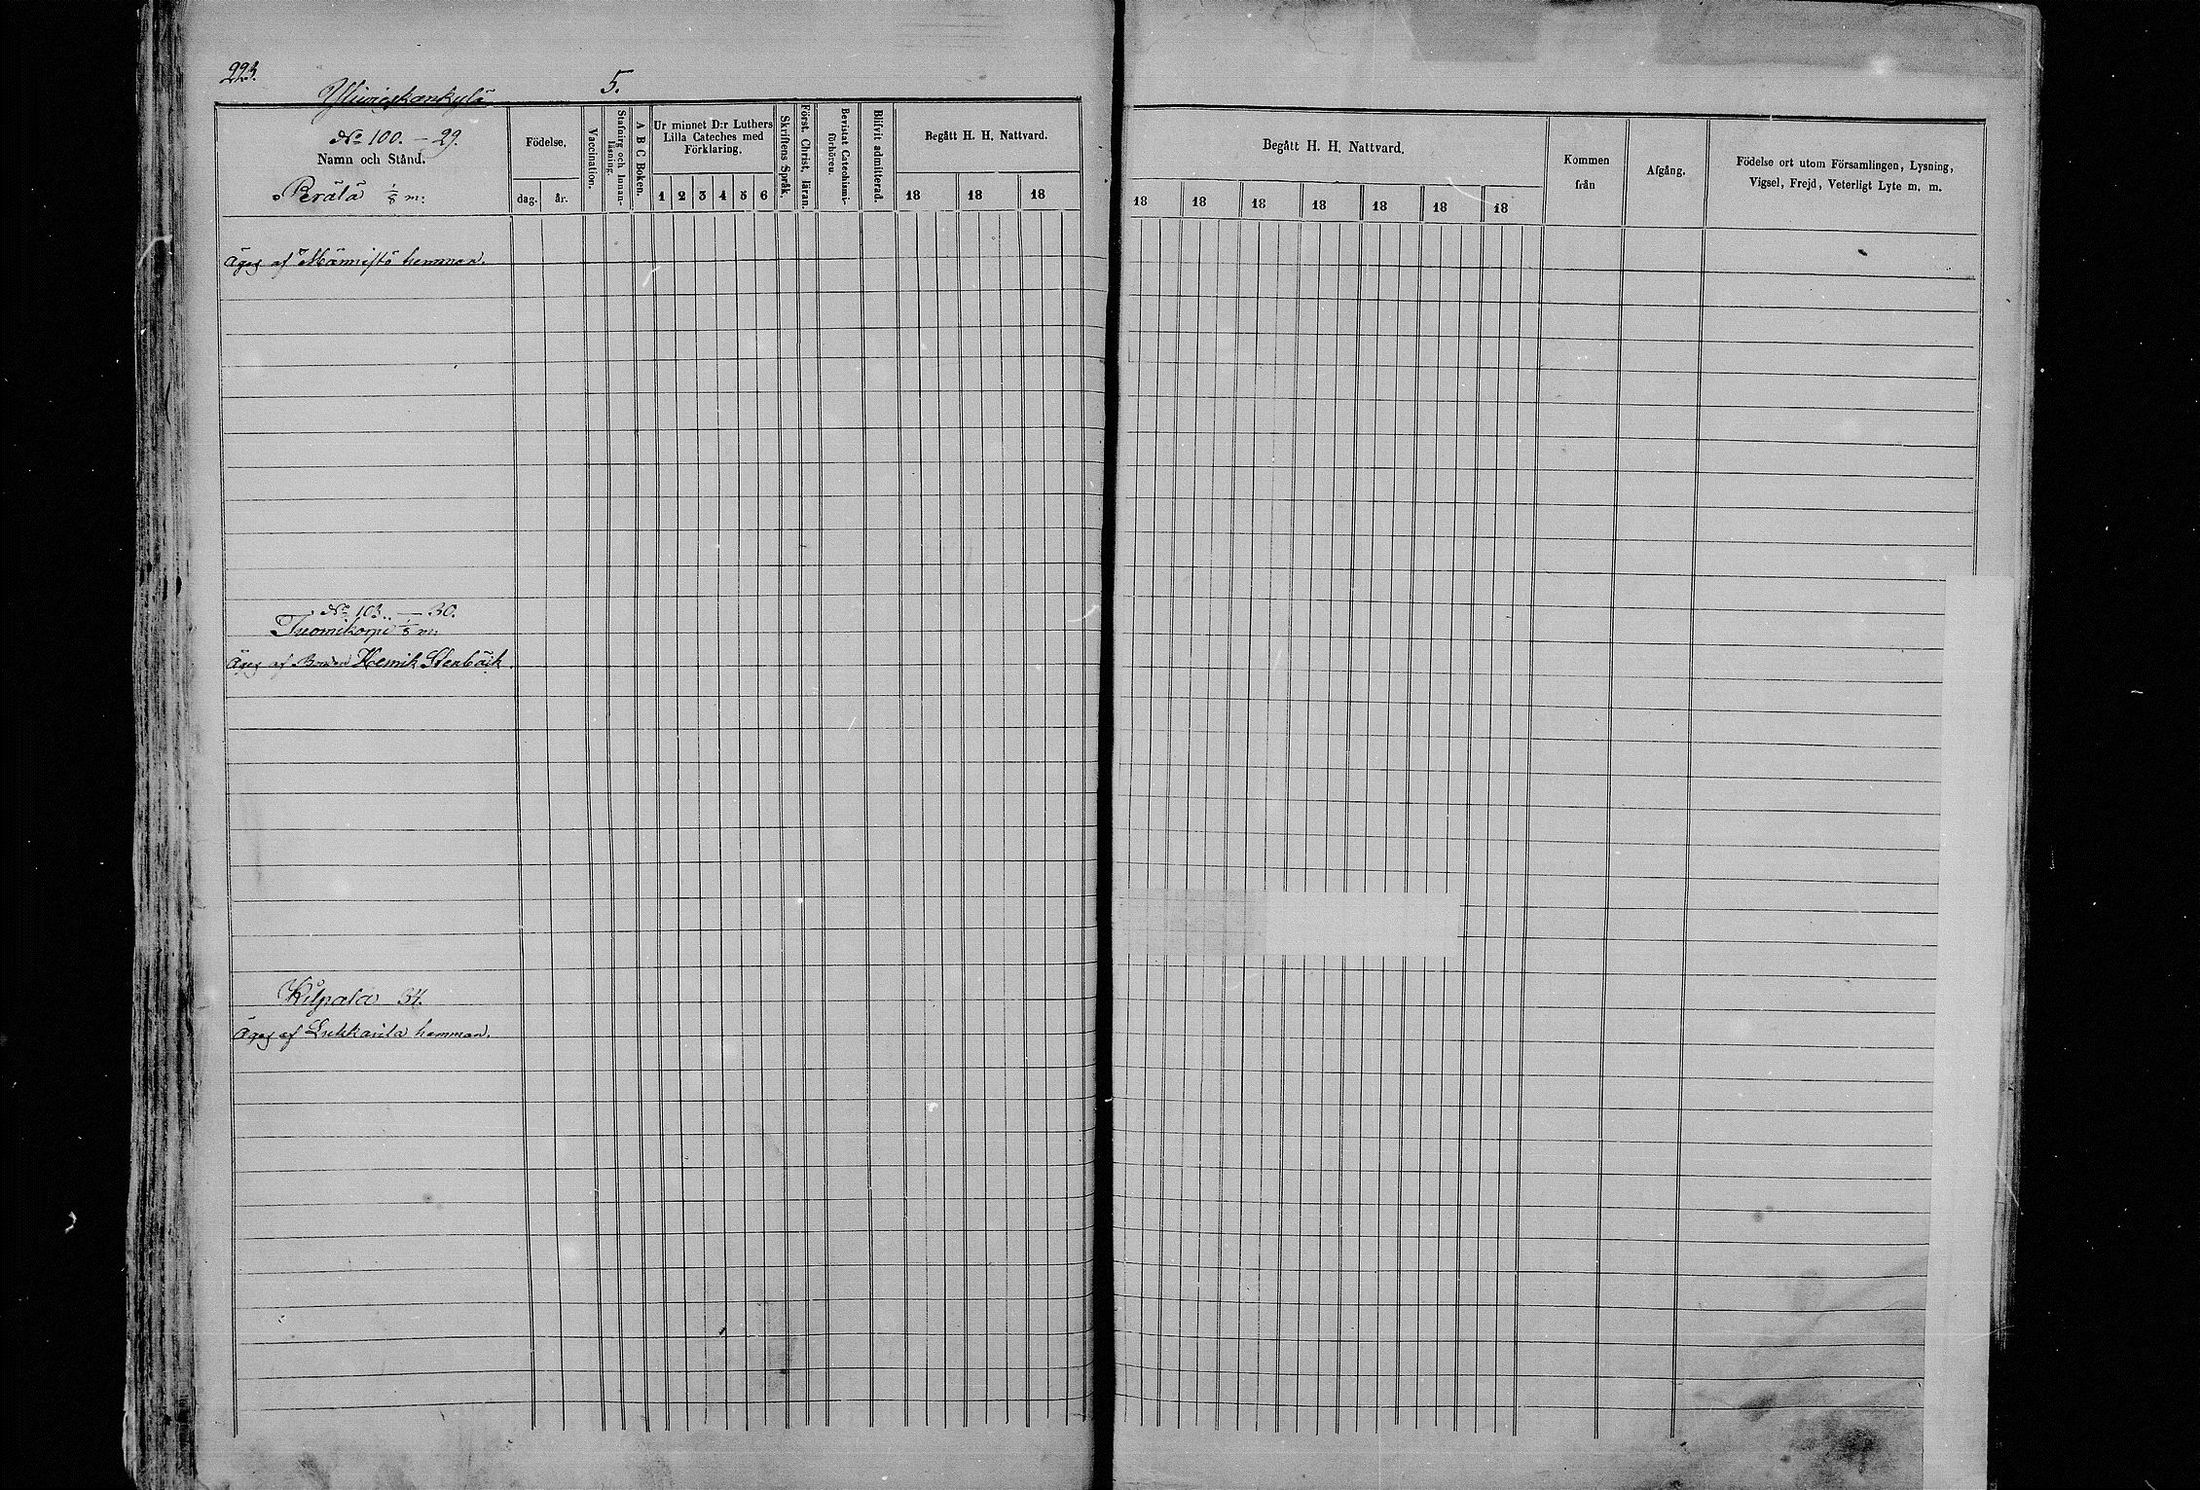 223.
Yliviirskankylä
5.
No 100. – 29.
Namn och Stånd.
Perälä 1/8 m:
Födelse.
dag.
år.
Vaccination.
Stafning och Innan-
läsning.
A B C Boken.
Ur minnet D:r Luthers
Lilla Cateches med
Förklaring.
1 2 3 4 5 6
Skriftens Språk.
Först. Christ. läran.
Bevistat Catechismi-
förhören.
Blifvit admitterad.
Begått H. H. Nattvard.
18 18 18
Begått H. H. Nattvard.
18 18 18 18 18 18 18
Kommen
från
Afgång.
Födelse ort utom Församlingen, Lysning,
Vigsel, Frejd, Veterligt Lyte m. m.
Äges af Männistö hemman.
No 103. – 30.
Tuomikoski 1/8 m:
Äges af Bonden Henrik Stenbäck.
Kilpala 34.
Äges af Lukkarila hemman.